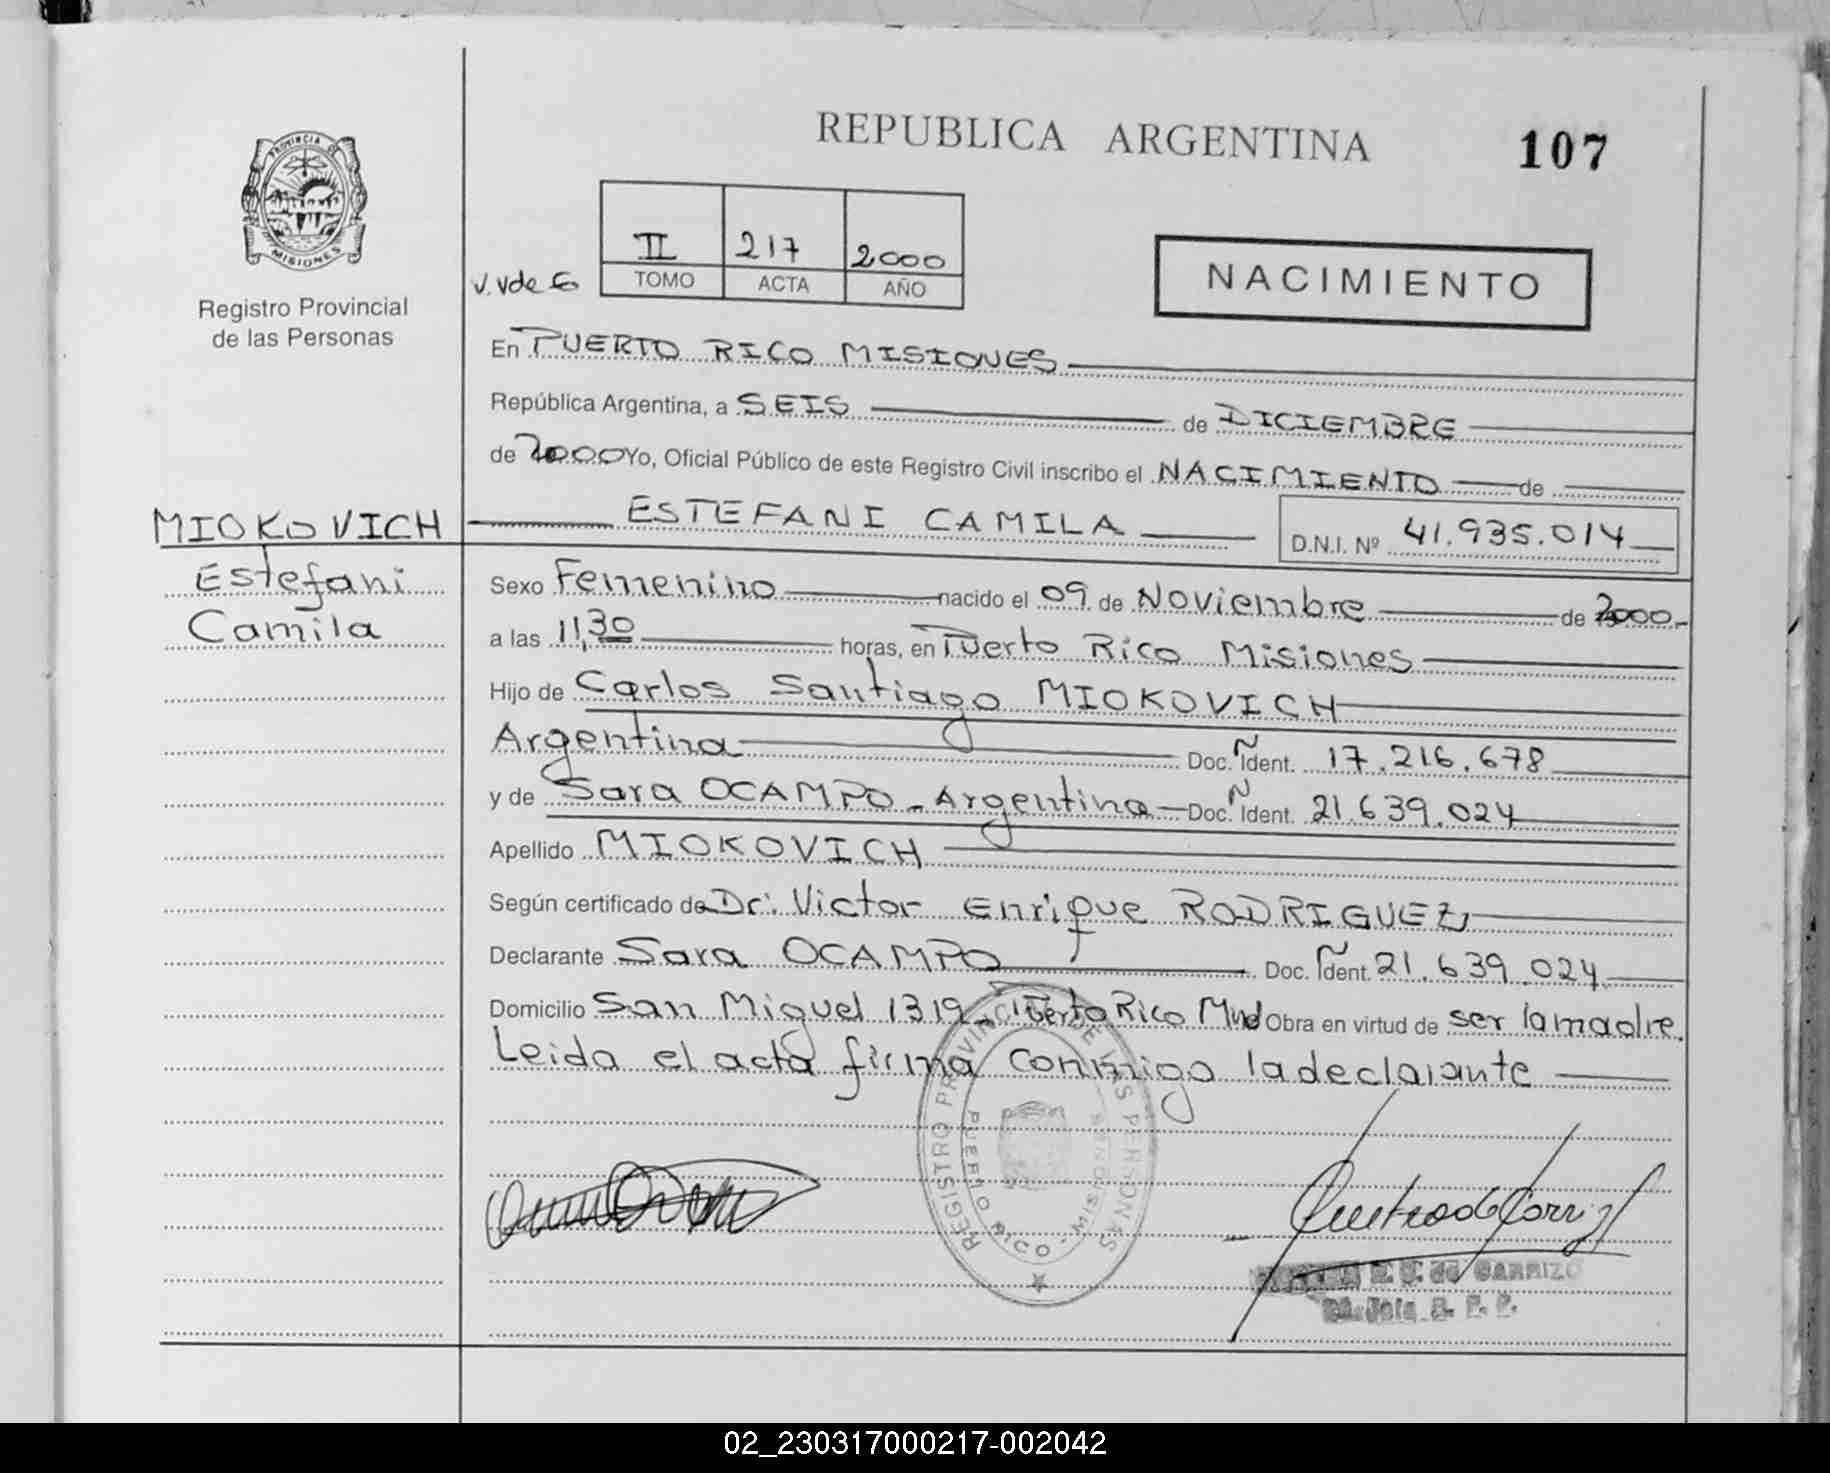 REPUBLICA ARGENTINA
107
PROVINCIA DE
MISIONES
Registro Provincial
de las Personas
II 217 2000
TOMO ACTA AÑO
NACIMIENTO
En PUERTO RICO MISIONES
República Argentina, a SEIS de DICIEMBRE
de 2000 Yo, Oficial Público de este Registro Civil inscribo el NACIMIENTO de
MIOKOVICH
ESTEFANI CAMILA D.N.I. Nº 41.935.014
Estefani
Camila
Sexo Femenino nacido el 09 de Noviembre de 2000.-
a las 11,30 horas, en Puerto Rico Misiones
Hijo de Carlos Santiago MIOKOVICH
Argentina Doc. Ident. 17.216.678
y de Sara OCAMPO - Argentina - Doc. Ident. 21.639.024
Apellido MIOKOVICH
Según certificado de Dr. Victor Enrique RODRIGUEZ
Declarante Sara OCAMPO Doc. Ident. 21.639.024
Domicilio San Miguel 1319 Puerto Rico Mnes Obra en virtud de ser la madre.
Leida el acta firma conmigo la declarante
REGISTRO PROVINCIAL DE LAS PERSONAS
PUERTO RICO - MISIONES
de CARRIZO
02_230317000217-002042